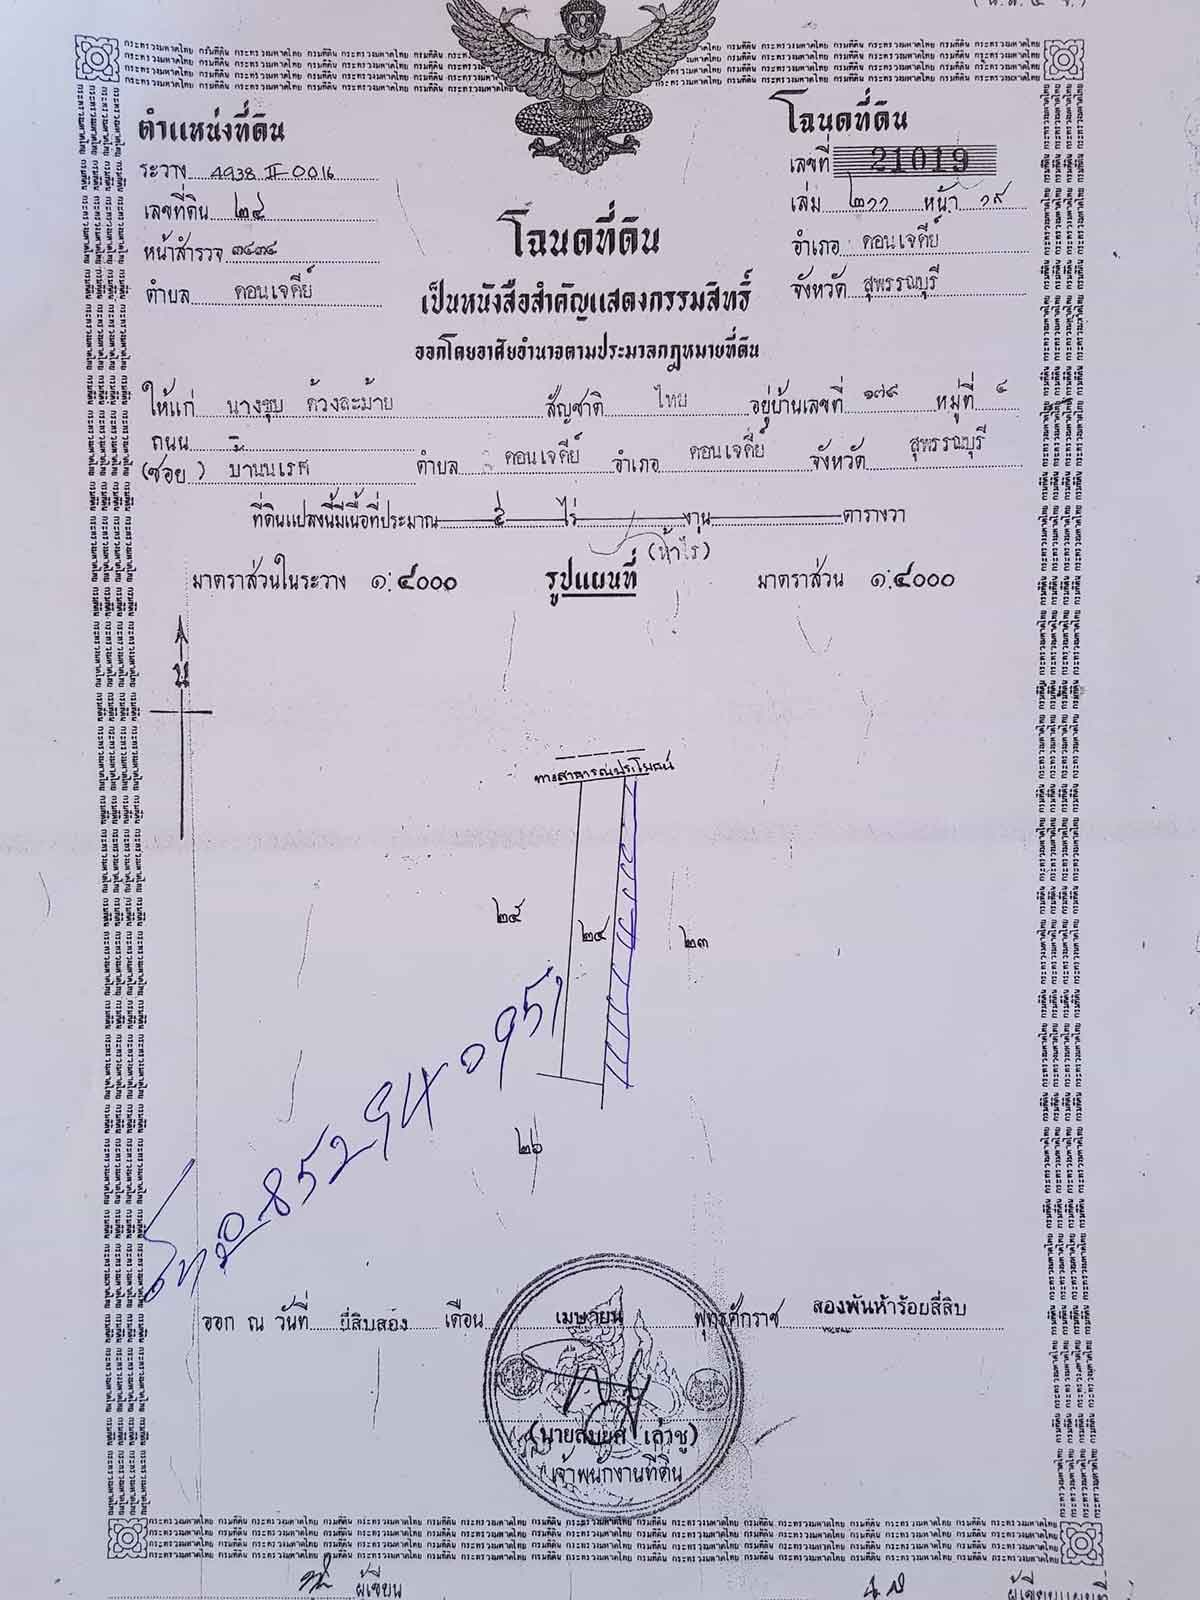 (น.ส. ๔ จ.)
ตำแหน่งที่ดิน
ระวาง 4938 II 0016
เลขที่ดิน ๒๔
หน้าสำรวจ ๓๔๓๔
ตำบล ดอนเจดีย์
โฉนดที่ดิน
เลขที่ 21019
เล่ม ๒๑๑ หน้า ๑๙
อำเภอ ดอนเจดีย์
จังหวัด สุพรรณบุรี
โฉนดที่ดิน
เป็นหนังสือสำคัญแสดงกรรมสิทธิ์
ออกโดยอาศัยอำนาจตามประมวลกฎหมายที่ดิน
ให้แก่ นางชุบ ด้วงละม้าย สัญชาติ ไทย อยู่บ้านเลขที่ ๑๗๙ หมู่ที่ ๔
ถนน -
(ซอย) บ้านนเรศ ตำบล ดอนเจดีย์ อำเภอ ดอนเจดีย์ จังหวัด สุพรรณบุรี
ที่ดินแปลงนี้มีเนื้อที่ประมาณ ๕ ไร่ งาน ตารางวา
(ห้าไร่)
มาตราส่วนในระวาง ๑:๔๐๐๐ รูปแผนที่ มาตราส่วน ๑:๔๐๐๐
น
ทางสาธารณประโยชน์
๒๕ ๒๔ ๒๓
๒๖
โทร 0852940951
ออก ณ วันที่ ยี่สิบสอง เดือน เมษายน พุทธศักราช สองพันห้าร้อยสี่สิบ
(นายสมยศ เล่าชู)
เจ้าพนักงานที่ดิน
ผู้เขียน ผู้เขียนแผนที่